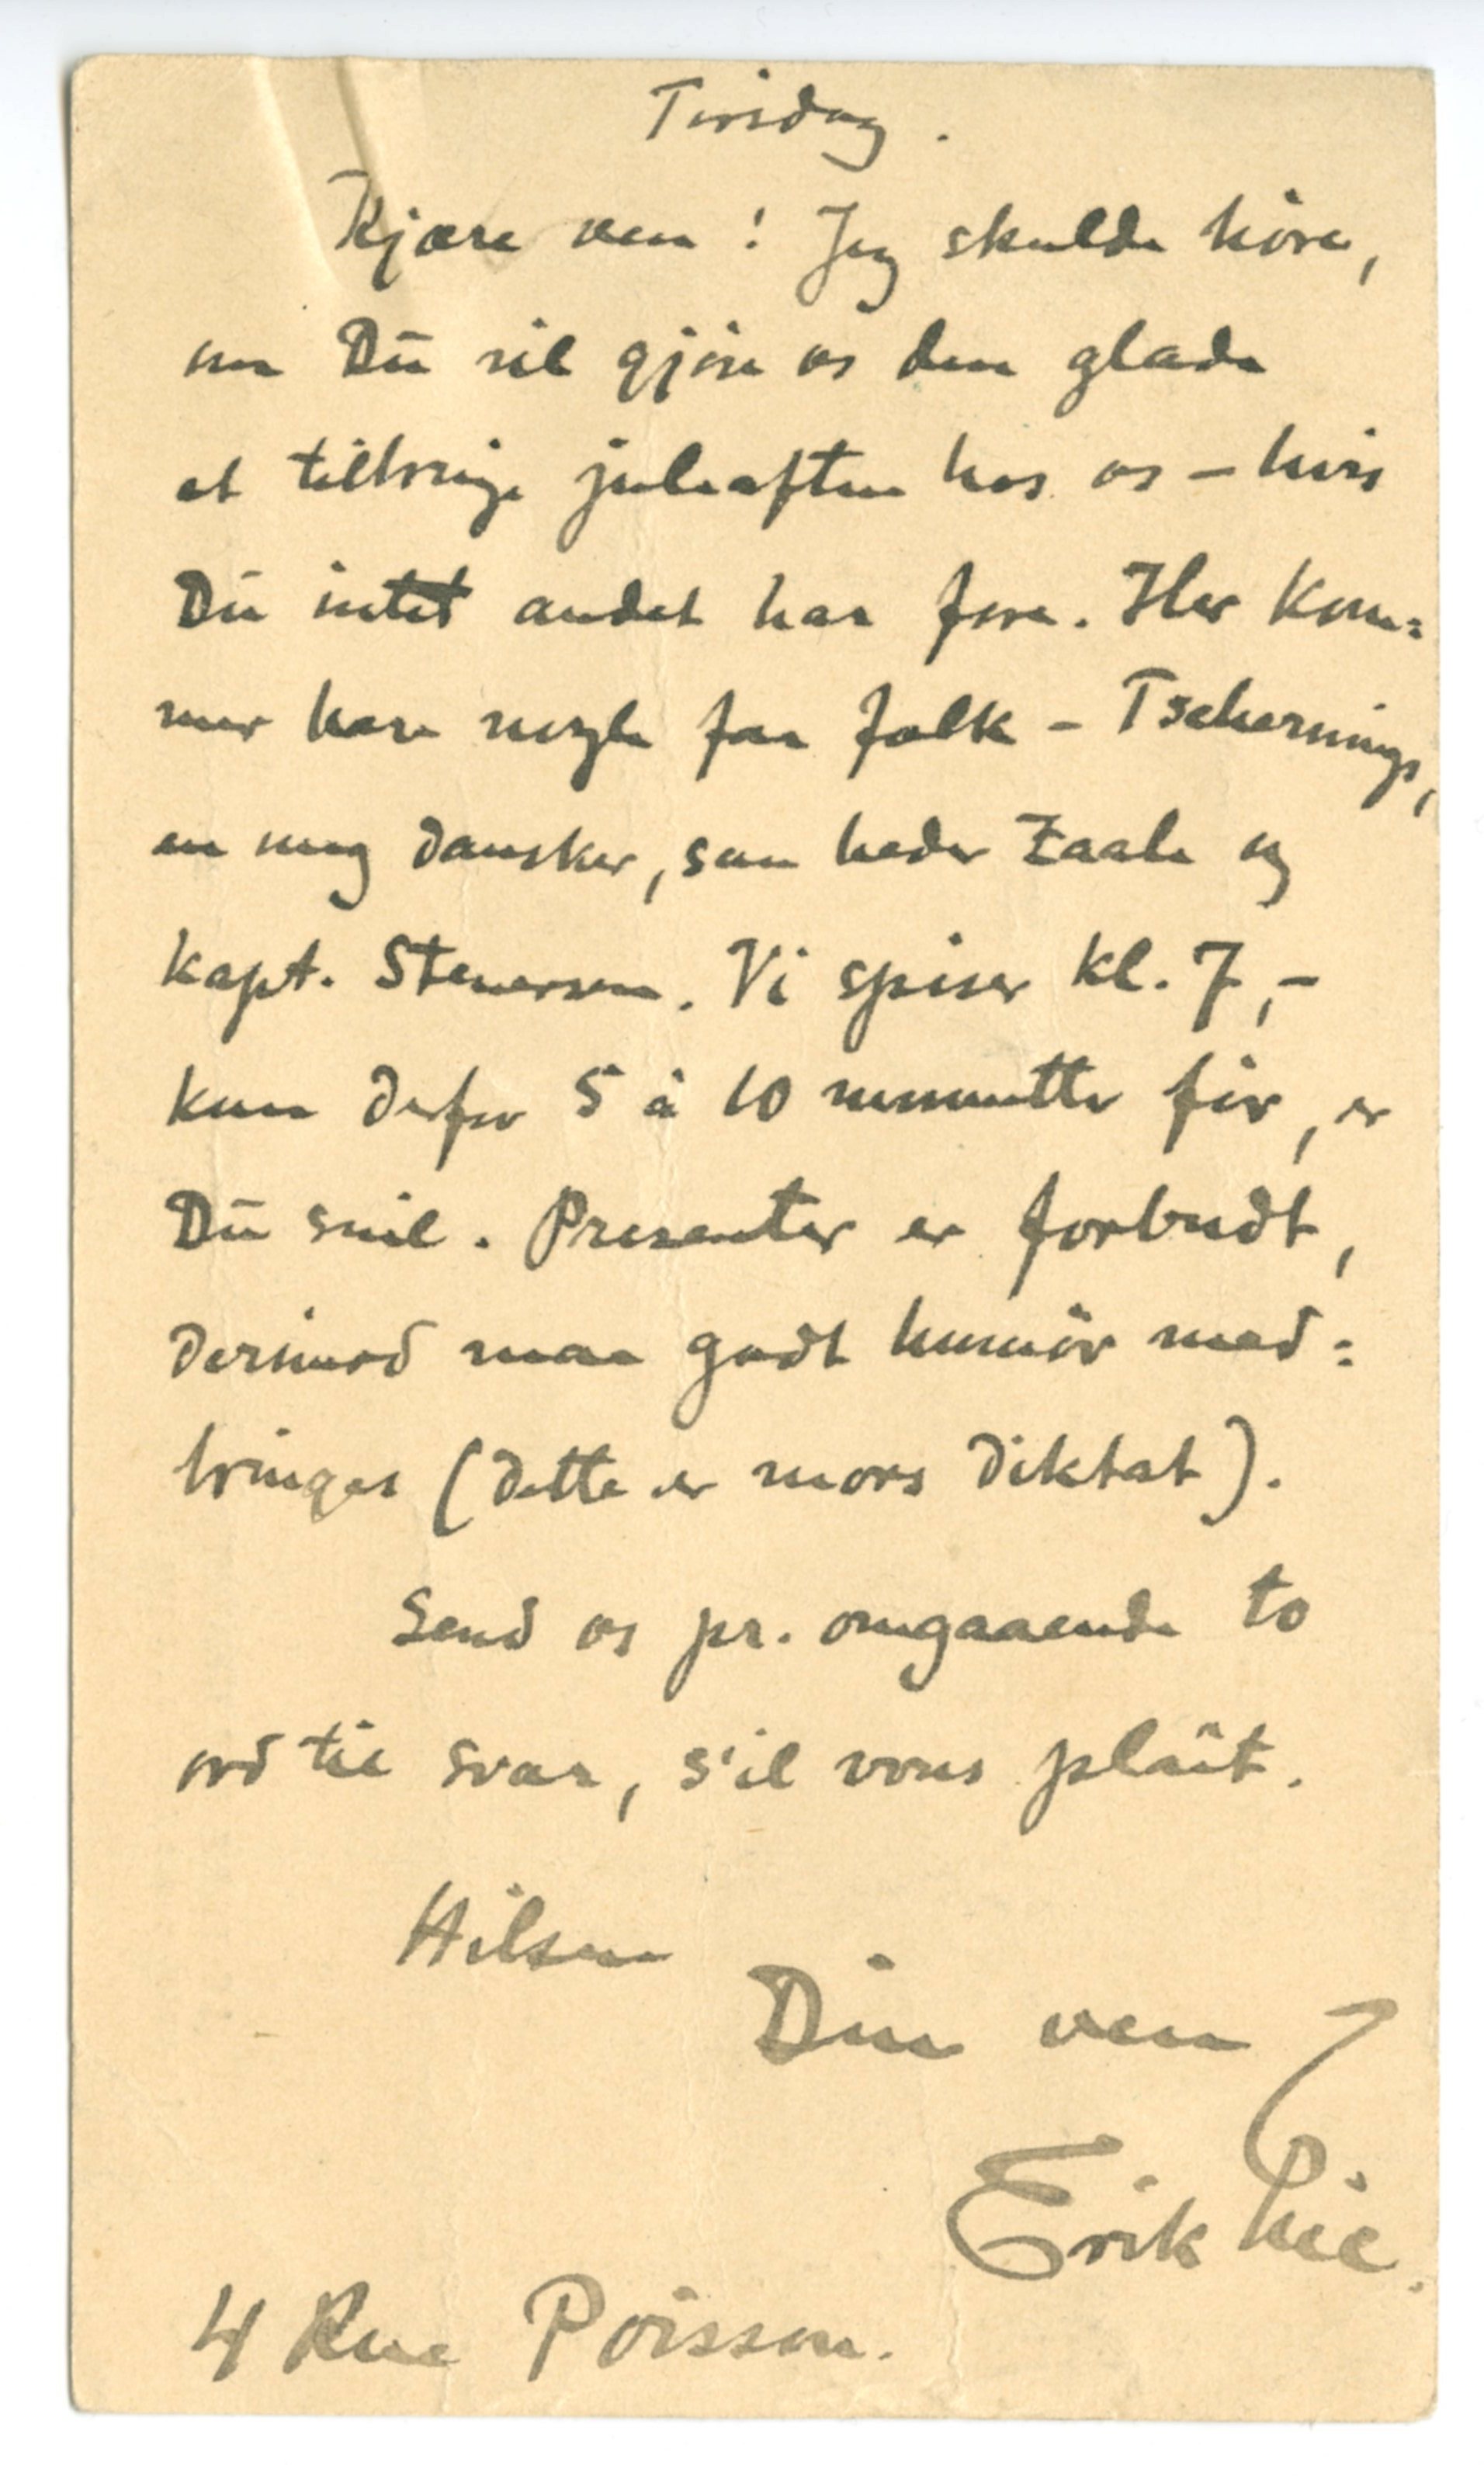 Tirsdag.
Kjære ven! Jeg skulde høre,
om Du vil gjøre os den glæde
at tilbringe juleaften hos os – hvis
Du intet andet har fore. Her kom=
mer bare nogle faa folk – Tschernings,
en ung dansker, som heder Zaale og
kapt. Stenersen. Vi spiser kl. 7,–
kom derfor 5 à 10 minutter før, er
Du snil. Presenter er forbudt,
derimod maa godt humør med=
bringes (dette er mors diktat).
Send os pr. omgaaende to
ord til svar, s'il vous plaît.
Hilsen
Din ven
Erik Lie.
4 Rue Poisson.